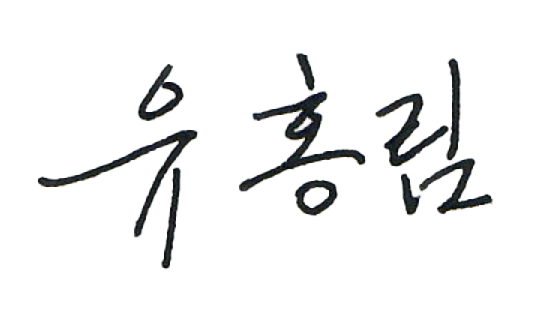 유홍림